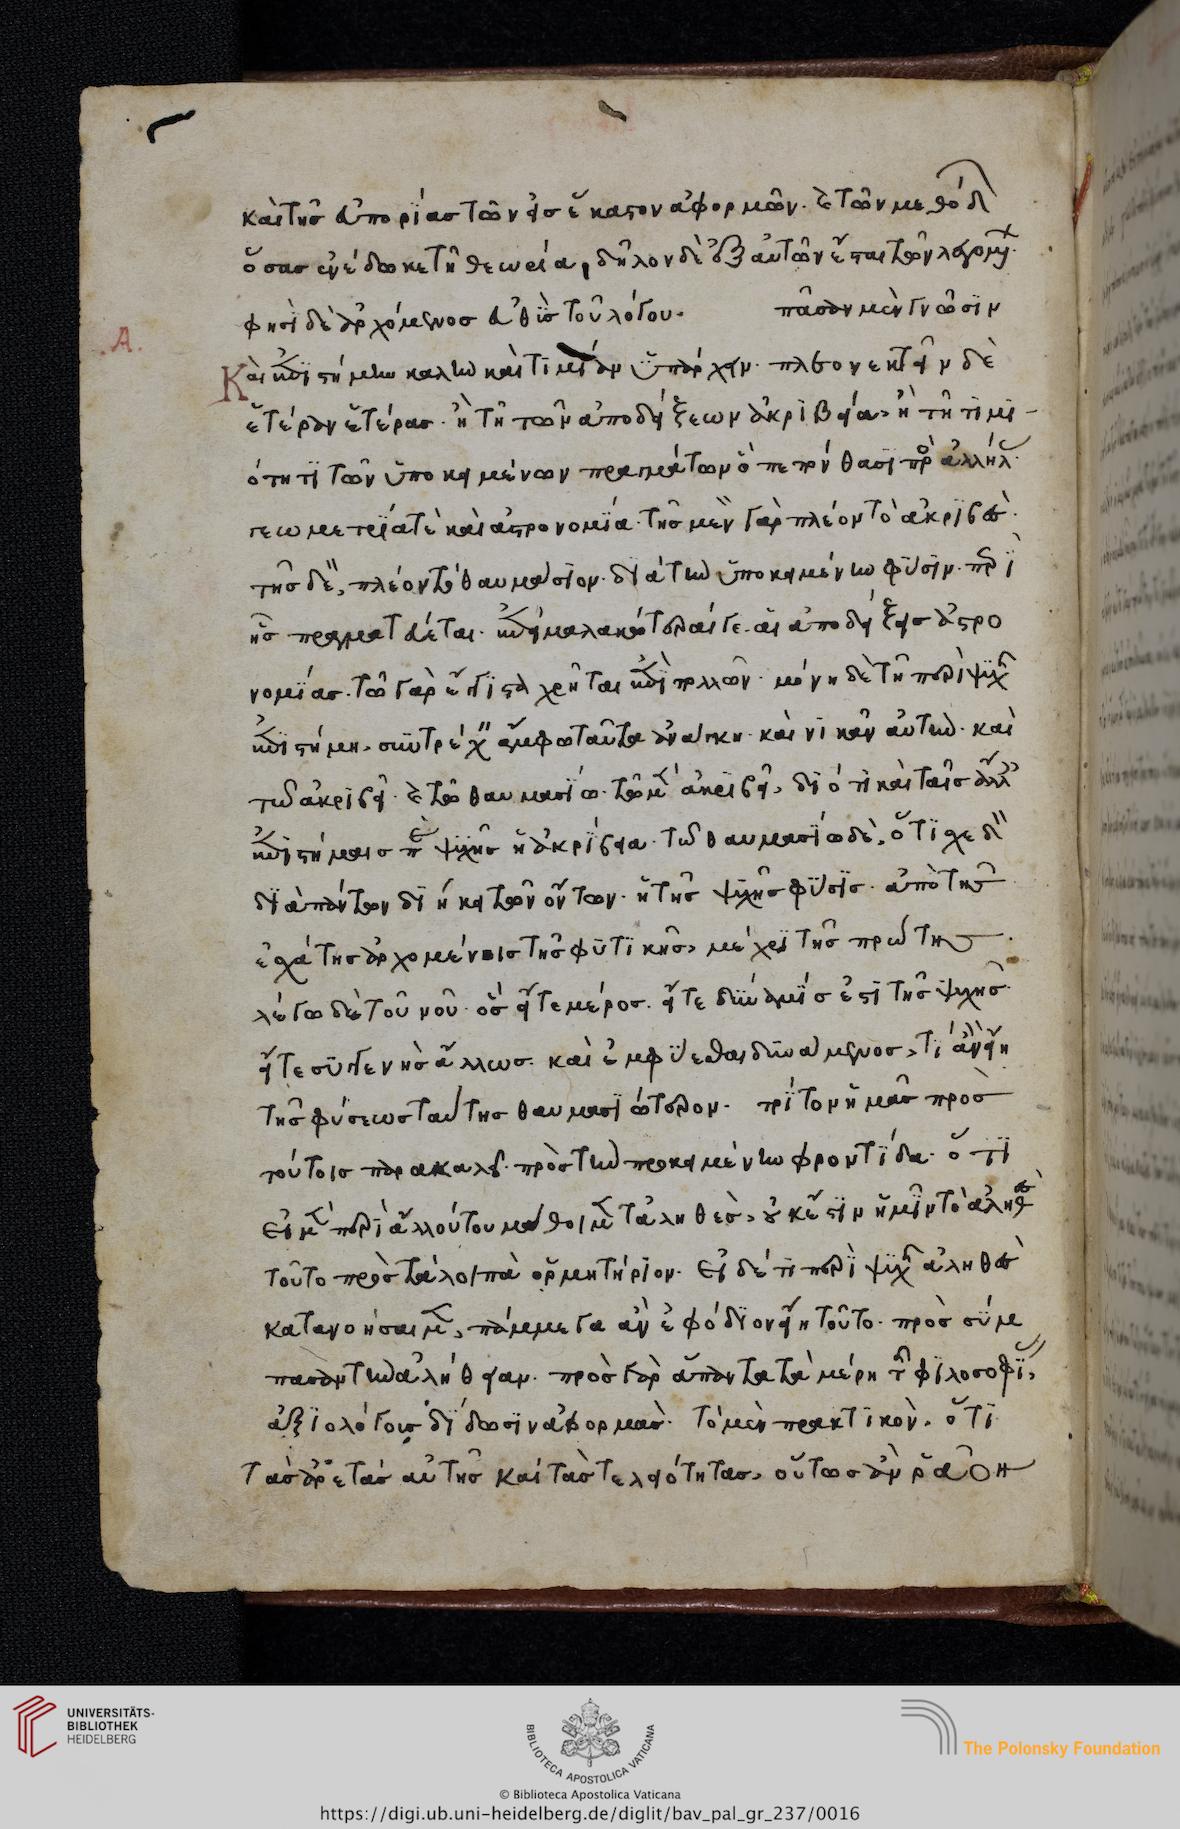 καὶ τῆς ἀπορίας τῶν εἰς ἕκαστον ἀφορμῶν. καὶ τῶν μεθόδ
ὅσας ἐνέδωκε τῇ θεωρία, δῆλον δὲ ἐξ αὐτῶν ἔσται τῶν λεγομ
φησὶ δὲ ἀρχόμενος εὐθὺς τοῦ λόγου. πᾶσαν μὲν γνῶσιν
.Α.
Καὶ ἐπιστήμην καλὴν καὶ τιμίαν ὑπάρχειν. πλεονεκτεῖν δὲ
ἑτέραν ἑτέρας. ἢ τῇ τῶν ἀποδείξεων ἀκριβεία, ἢ τῇ τιμι-
ότητι τῶν ὑποκειμένων πραγμάτων ὃ πεπόνθασι πρὸς ἀλλήλ
γεωμετρία τὲ καὶ ἀστρονομία. τῆς μὲν γὰρ πλέον τὸ ἀκριβὲς.
τῆς δὲ, πλέον τὸ θαυμάσιον. διὰ τὴν ὑποκειμένην φύσιν. περὶ
ἧς πραγματεύεται. ἐπεὶ μαλακώτεραί γε αἱ ἀποδείξεις ἀστρο
νομίας. τῷ γὰρ ἔγγιστα χρῆται ἐπὶ πολλῶν. μόνῃ δὲ τῇ περὶ ψυχῆς
ἐπιστήμῃ, συντρέχειν ἄμφω ταῦτα ἀνάγκη. καὶ νικᾶν αὐτὴν. καὶ
τῷ ἀκριβεῖ. καὶ τῷ θαυμασίω. τῷ μὲν ἀκριβεῖ, διότι καὶ ταῖς ἄλλ
ἐπιστήμαις παρὰ ψυχῆς ἡ ἀκρίβεια. τῷ θαυμασίω δὲ, ὅτι σχεδ
διὰ πάντων διήκει τῶν ὄντων. ἡ τῆς ψυχῆς φύσις. ἀπὸ τῆς
ἐσχάτης ἀρχομένοις τῆς φυτικῆς, μέχρι τῆς πρώτης.
λέγω δὲ τοῦ νοῦ. ὅς εἴτε μέρος. εἴτε δύναμίς ἐστι τῆς ψυχῆς.
εἴτε συγγενὴς ἄλλως. καὶ ἐμφύεσθαι δυνάμενος, τί ἂν εἴη
τῆς φύσεως ταύτης θαυμασιώτερον. τρίτον ἡμᾶς πρὸς
τούτοις παρακαλεῖ. πρὸς τὴν προκειμένην φροντίδα. ὅτι
εἰ μὲν περὶ ἄλλού του μάθοιμεν τἀληθὲς, οὐκ ἔστιν ἡμῖν τὸ ἀληθὲς
τοῦτο πρὸς τὰ λοιπὰ ὁρμητήριον. εἰ δέ τι περὶ ψυχῆς ἀληθὲς
κατανοήσαιμεν, πάμμεγα ἂν ἐφόδιον εἴη τοῦτο. πρὸς σύμ
πασαν τὴν ἀλήθειαν. πρὸς γὰρ ἅπαντα τὰ μέρη τῆς φιλοσοφί,
ἀξιολόγους δίδωσιν ἀφορμάς. τὸ μὲν πρακτικὸν, ὅτι
τὰς ἀρετάς αὐτῆς καὶ τὰς τελειότητας, οὕτως ἂν ῥᾷον
UNIVERSITÄTS-
BIBLIOTHEK
HEIDELBERG
BIBLIOTECA APOSTOLICA VATICANA
The Polonsky Foundation
© Biblioteca Apostolica Vaticana
https://digi.ub.uni-heidelberg.de/diglit/bav_pal_gr_237/0016